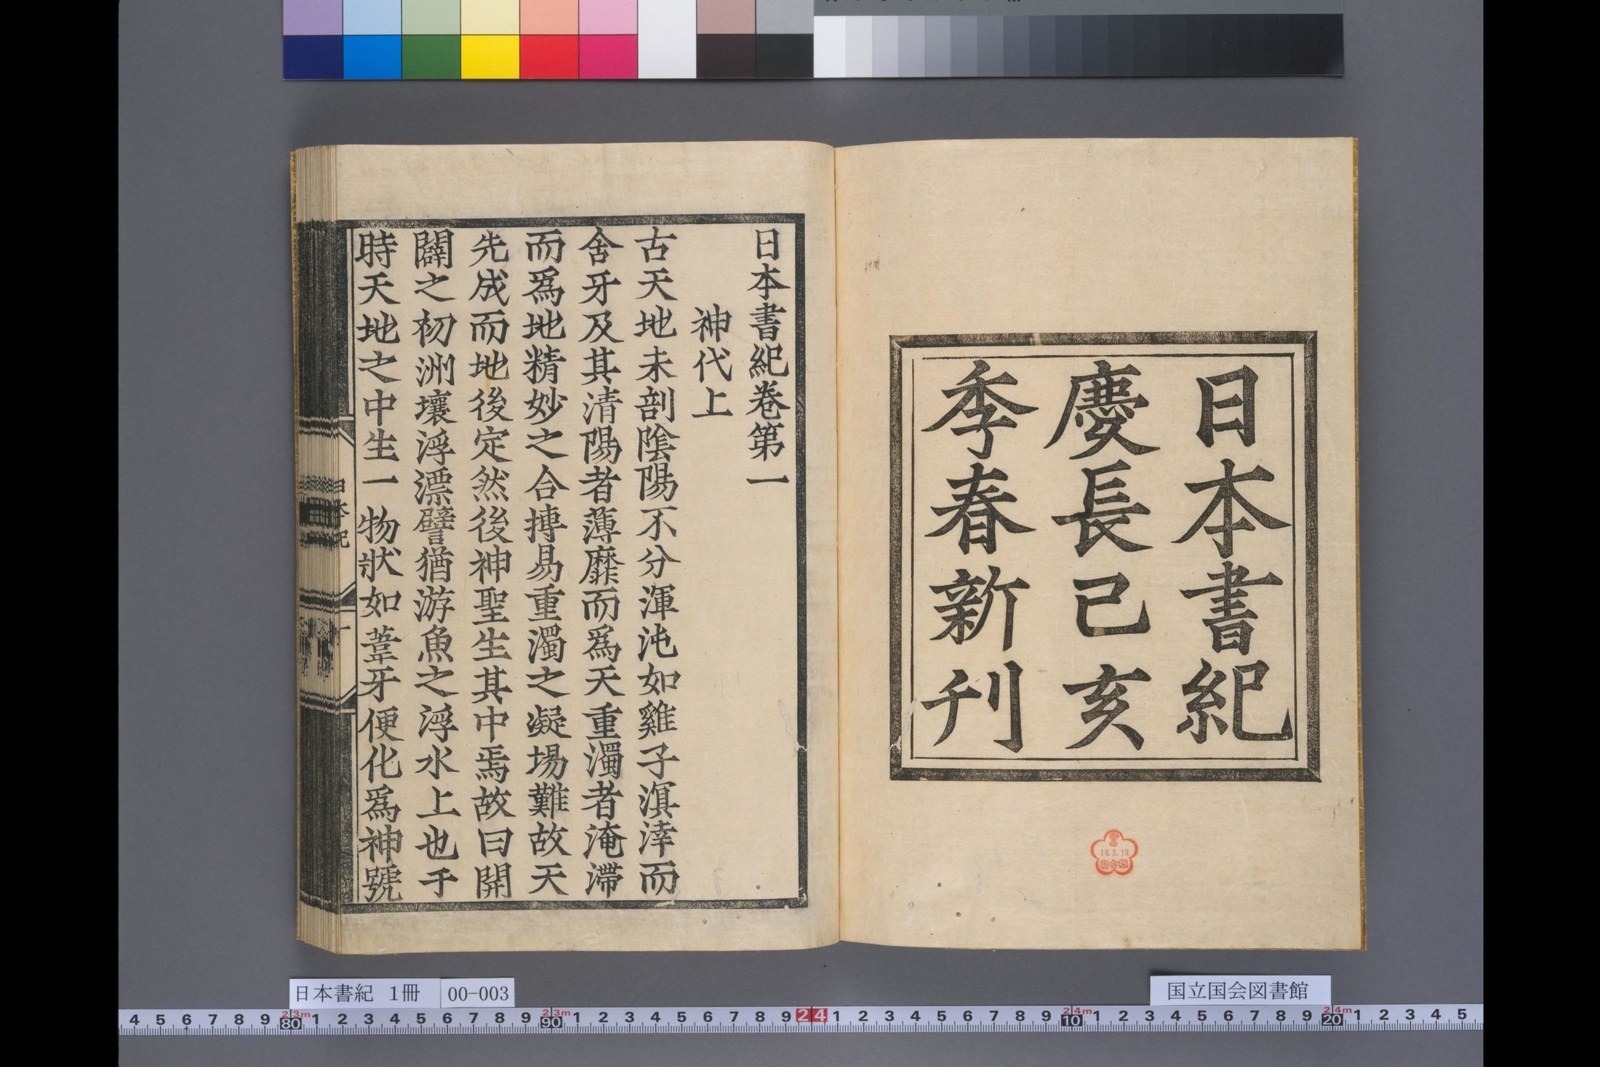 日本書紀
慶長己亥
季春新刊
日本書紀卷第一
神代上
古天地未剖陰陽不分渾沌如雞子溟涬而
含牙及其清陽者薄靡而爲天重濁者淹滯
而爲地精妙之合搏易重濁之凝場難故天
先成而地後定然後神聖生其中焉故曰開
闢之初洲壤浮漂譬猶游魚之浮水上也于
時天地之中生一物狀如葦牙便化爲神號
日本書紀 1冊
00-003
国立国会図書館